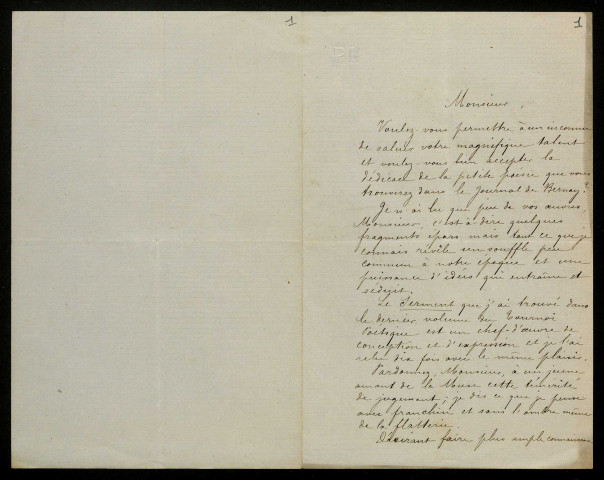 1
1
Monsieur,
Voulez-vous permettre à un inconnu
de saluer votre magnifique talent
et voulez-vous bien accepter la
dédicace de la petite poésie que vous
trouverez dans le Journal de Bernay?
Je n'ai lu que peu de vos œuvres,
Monsieur, c'est à dire quelques
fragments épars mais tout ce que je
connais révèle un souffle peu
commun à notre époque et une
puissance d'idées qui entraîne et
séduit.
Le Serment que j'ai trouvé dans
le dernier volume du Tournoi
Poétique est un chef-d'œuvre de
conception et d'expression et je l'ai
relu dix fois avec le même plaisir.
Pardonnez, Monsieur, à un jeune
amant de la Muse cette témérité
de jugement; je dis ce que je pense
avec franchise et sans l'ombre même
de la flatterie.
Désirant faire plus ample connaissance